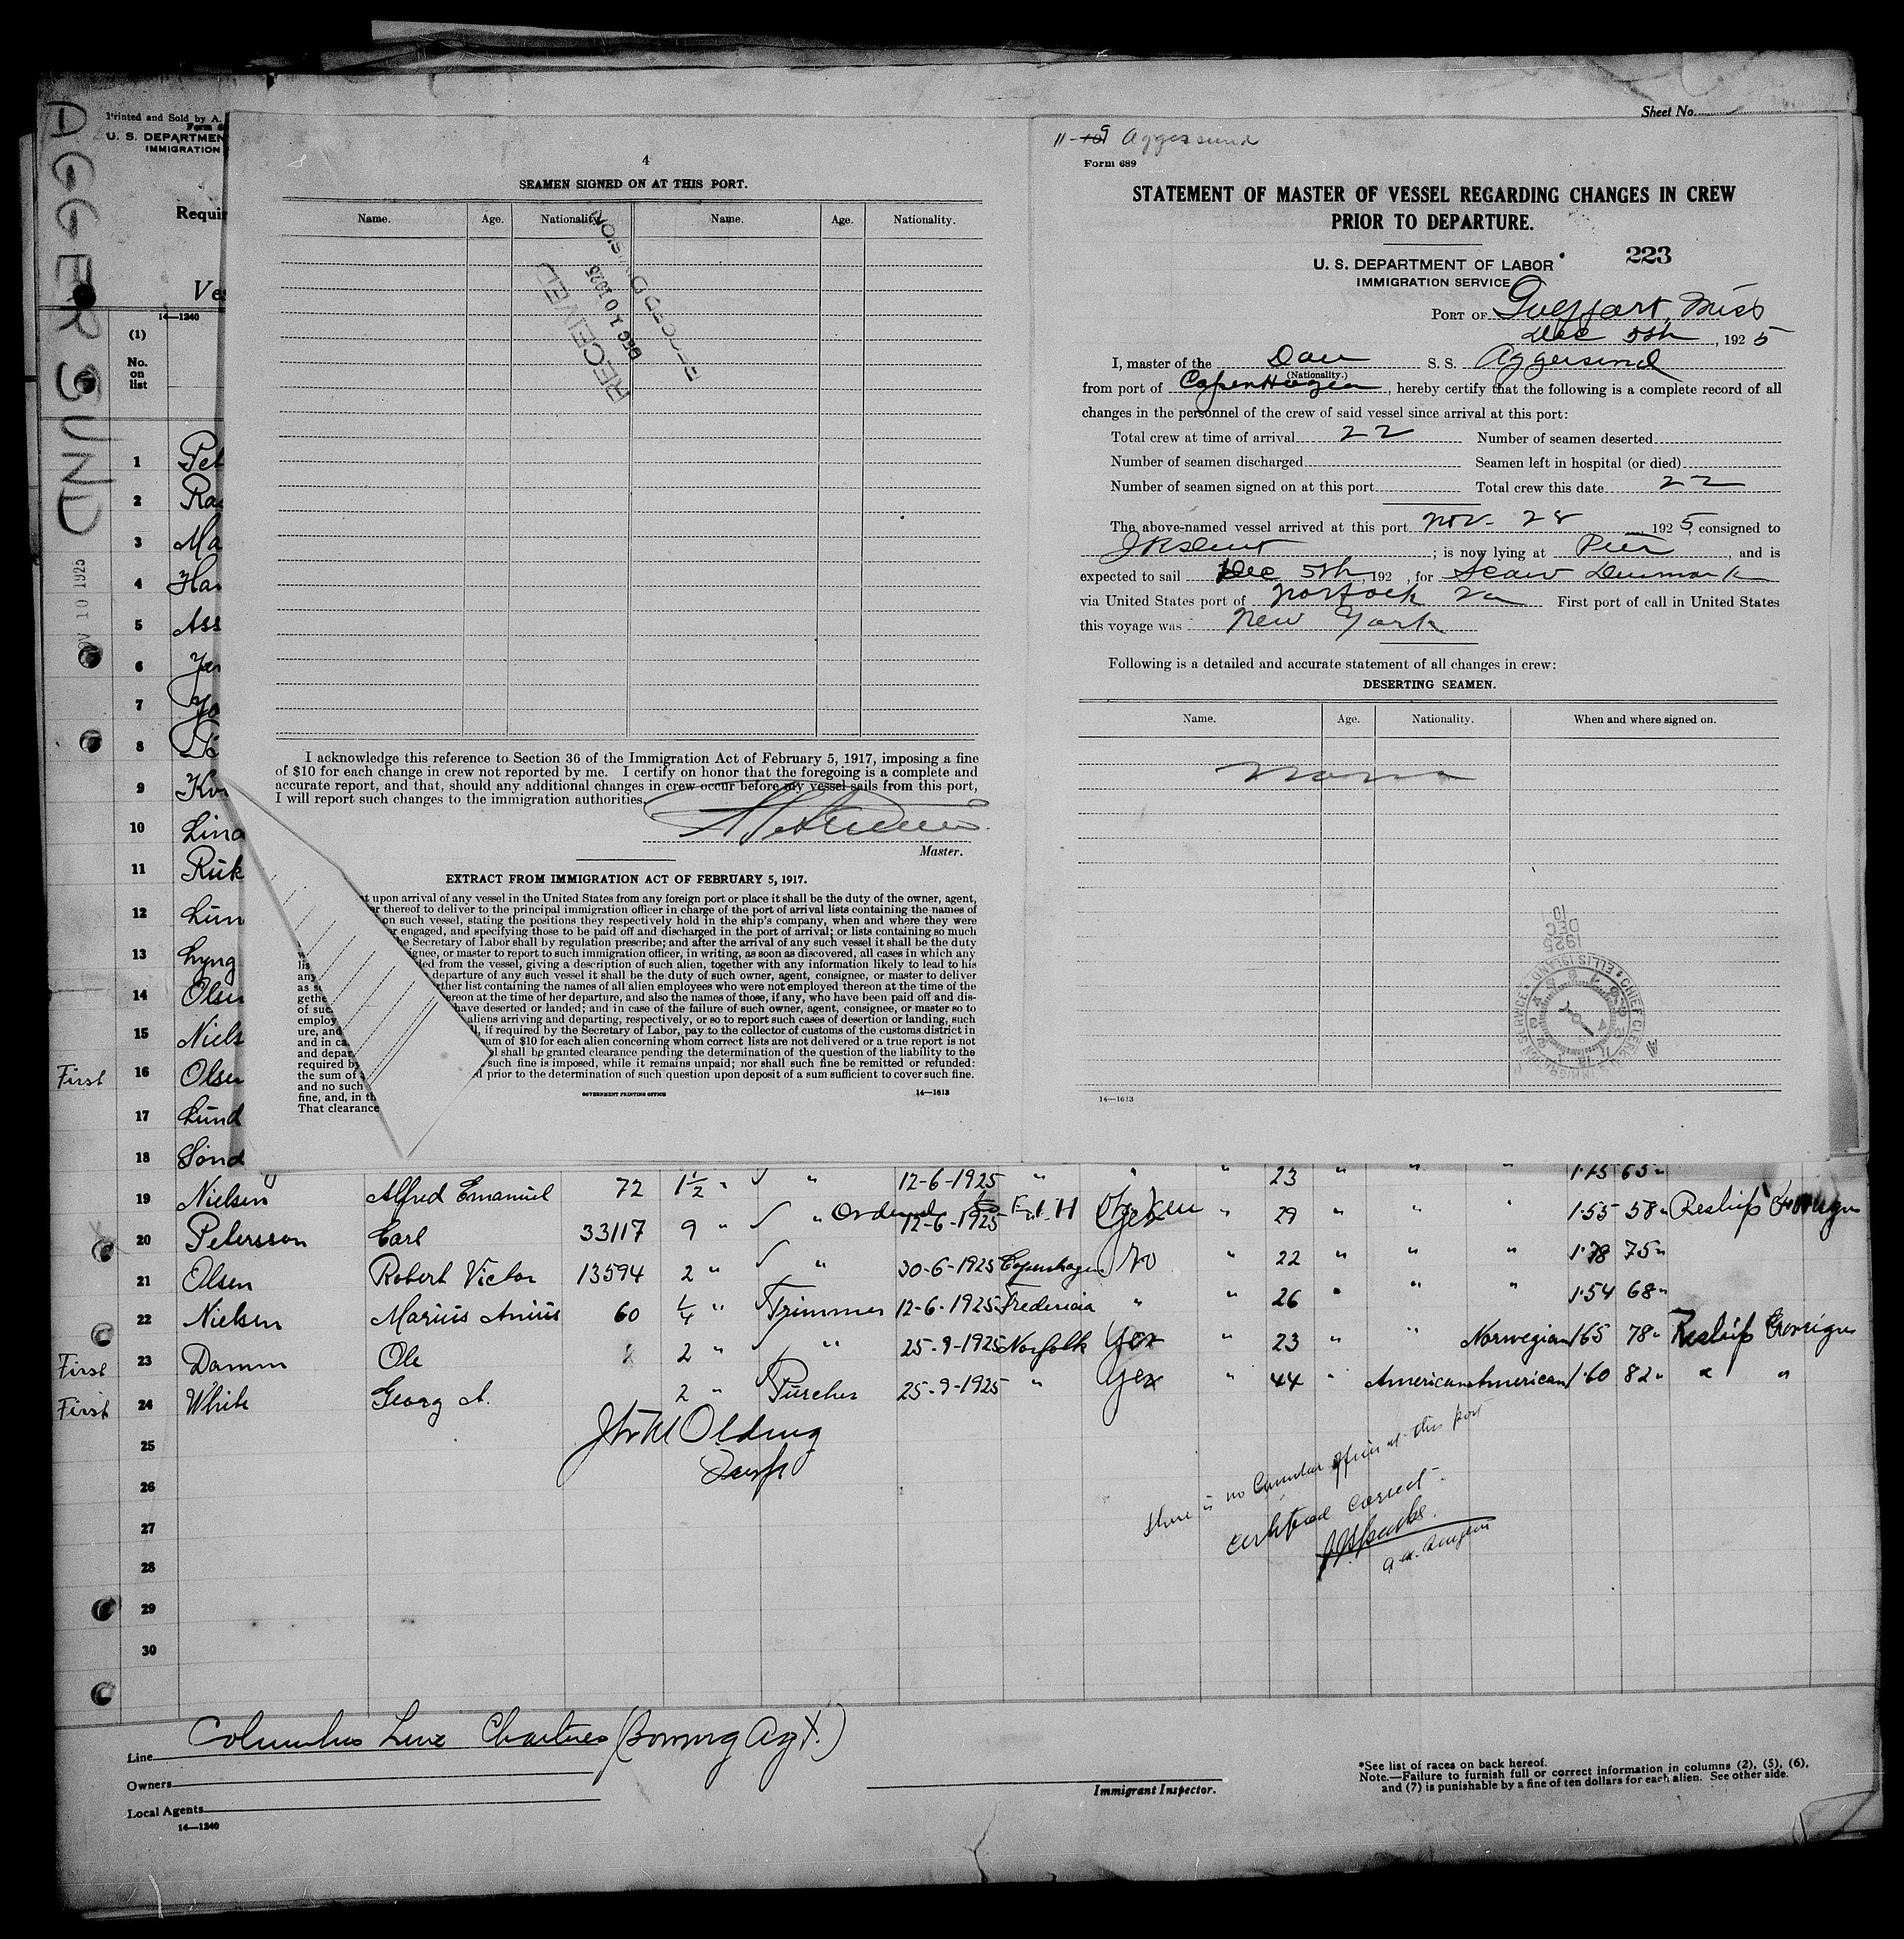 AGGERSUND
NOV 10 1925
Printed and Sold by A.
U. S. DEPARTMEN
IMMIGRATION
Requir
Ve
14—1240
(1)
No.
on
list
Sheet No.
4
SEAMEN SIGNED ON AT THIS PORT.
Name. Age. Nationality. Name. Age. Nationality.
RECEIVED
DEC 10 1925
RECORD DIVISION
I acknowledge this reference to Section 36 of the Immigration Act of February 5, 1917, imposing a fine
of $10 for each change in crew not reported by me. I certify on honor that the foregoing is a complete and
accurate report, and that, should any additional changes in crew occur before my vessel sails from this port,
I will report such changes to the immigration authorities.
Master.
EXTRACT FROM IMMIGRATION ACT OF FEBRUARY 5, 1917.
t upon arrival of any vessel in the United States from any foreign port or place it shall be the duty of the owner, agent,
er thereof to deliver to the principal immigration officer in charge of the port of arrival lists containing the names of
on such vessel, stating the positions they respectively hold in the ship's company, when and where they were
or engaged, and specifying those to be paid off and discharged in the port of arrival; or lists containing so much
he Secretary of Labor shall by regulation prescribe; and after the arrival of any such vessel it shall be the duty
ignee, or master to report to such immigration officer, in writing, as soon as discovered, all cases in which any
lis ded from the vessel, giving a description of such alien, together with any information likely to lead to his
any departure of any such vessel it shall be the duty of such owner, agent, consignee, or master to deliver
as s rther list containing the names of all alien employees who were not employed thereon at the time of the
gethe ereon at the time of her departure, and also the names of those, if any, who have been paid off and dis-
of suc have deserted or landed; and in case of the failure of such owner, agent, consignee, or master so to
employ aliens arriving and departing, respectively, or so to report such cases of desertion or landing, such
ure, and l, if required by the Secretary of Labor, pay to the collector of customs of the customs district in
and in ca um of $10 for each alien concerning whom correct lists are not delivered or a true report is not
and depar el shall be granted clearance pending the determination of the question of the liability to the
required by such fine is imposed, while it remains unpaid; nor shall such fine be remitted or refunded:
the sum of d prior to the determination of such question upon deposit of a sum sufficient to cover such fine.
and no such
fine, and, in th
That clearance
GOVERNMENT PRINTING OFFICE 14—1613
11-9 Aggersund
Form 689
STATEMENT OF MASTER OF VESSEL REGARDING CHANGES IN CREW
PRIOR TO DEPARTURE.
U. S. DEPARTMENT OF LABOR
IMMIGRATION SERVICE
223
PORT OF Gulfport, Miss
Dec 5th, 1925
I, master of the Dan S. S. Aggersund
(Nationality.)
from port of CopenHagen, hereby certify that the following is a complete record of all
changes in the personnel of the crew of said vessel since arrival at this port:
Total crew at time of arrival 22 Number of seamen deserted
Number of seamen discharged Seamen left in hospital (or died)
Number of seamen signed on at this port Total crew this date 22
The above-named vessel arrived at this port Nov. 28 1925, consigned to
; is now lying at Pier, and is
expected to sail Dec 5th, 192 , for Scaw Denmark
via United States port of Norfock Va First port of call in United States
this voyage was New York
Following is a detailed and accurate statement of all changes in crew:
DESERTING SEAMEN.
Name. Age. Nationality. When and where signed on.
None
DEC 10 1925
CHIEF CLERK
ELLIS ISLAND
14—1613
1 Pet
2 Ras
3 Ma
4 Han
5 Ass
6 Jen
7 Jo
8
9 Kv
10 Lind
11 Rük
12 Lün
13 Lyng
14 Olsen
15 Niels
First 16 Olsen
17 Lünd
18 Sönd
12-6-1925 " " " 23 " " " 1.75 65 "
19 Nielsen Alfred Emanuel 72 1½ " "
Ordered to E.I.H
20 Petersson Carl 33117 9 " " 12-6-1925 " Yes " 29 " " " 1.55 58 " Reship Foreign
21 Olsen Robert Victor 13594 2 " " 30-6-1925 Copenhagen No " 22 " " " 1.78 75 "
22 Nielsen Marius Anius 60 ¼ " Trimmer 12-6-1925 Fredericia " " 26 " " " 1.54 68 "
First 23 Damm Ole 2 " " 25-9-1925 Norfolk Yes " 23 " " Norwegian 1.65 78 " Reship Foreign
First 24 White Georg A. 2 " 25-9-1925 " Yes " 44 " American American 1.60 82 " " "
25
26
27
28
29
30
There is no Consular office at this port
Certified Correct
Line Columbus Line Chartres (Bowring Agt.)
Owners
Local Agents
14—1240
Immigrant Inspector.
*See list of races on back hereof.
Note.—Failure to furnish full or correct information in columns (2), (5), (6),
and (7) is punishable by a fine of ten dollars for each alien. See other side.